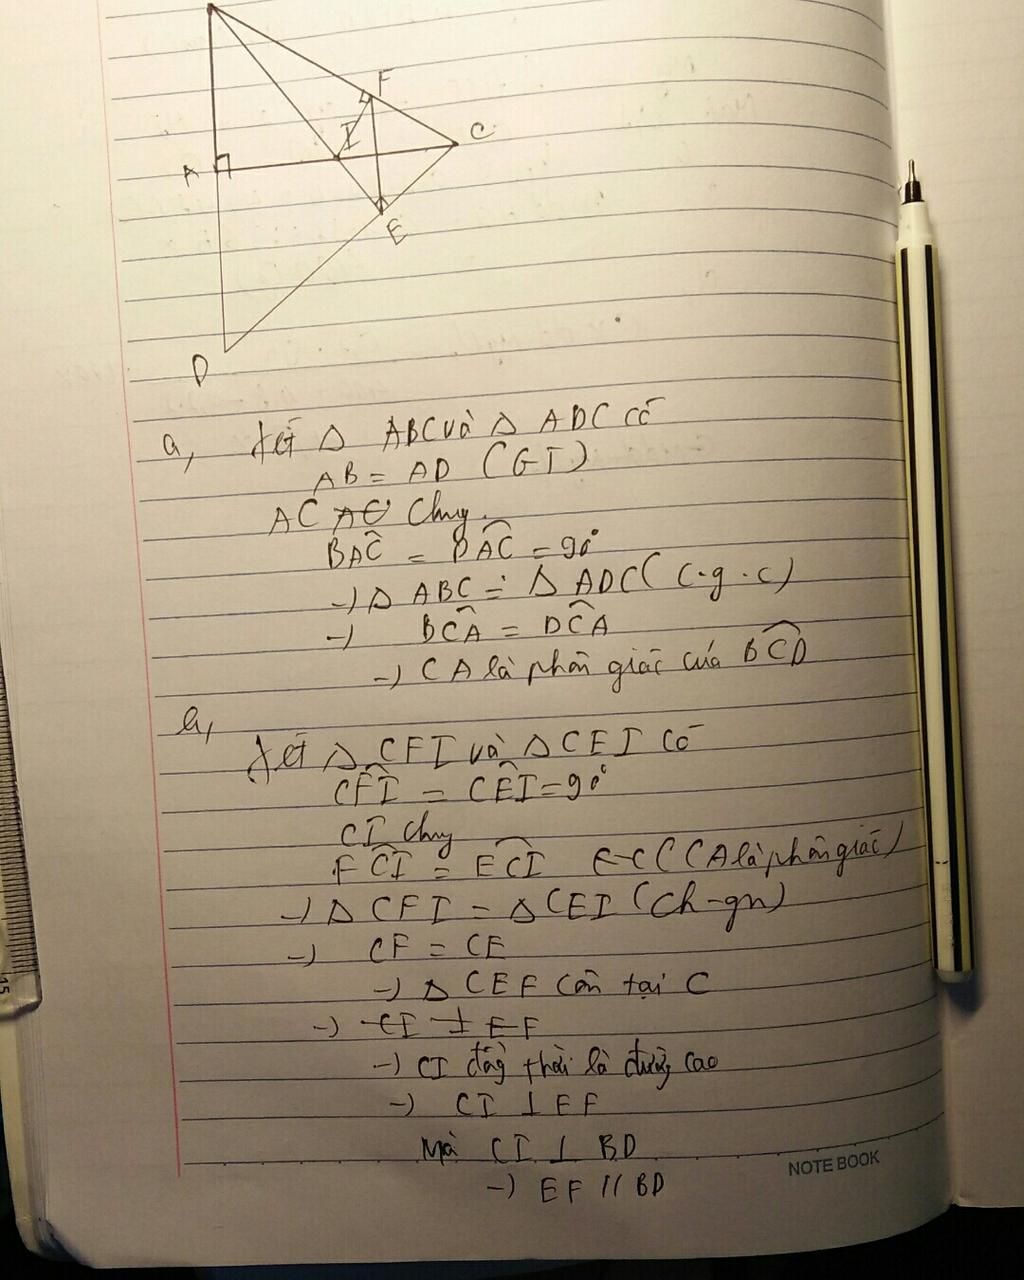 F
I
C
A
E
D
a, Xét Δ ABC và Δ ADC có
AB = AD (GT)
AC AC chung.
BAC = DAC = 90°
-) Δ ABC = Δ ADC (c.g.c)
-) BCA = DCA
-) CA là phân giác của BCD
b,
Xét Δ CFI và Δ CEI có
CFI = CEI = 90°
CI chung
FCI = ECI (CA là phân giác)
-) Δ CFI = Δ CEI (ch-gn)
-) CF = CE
-) Δ CEF cân tại C
-) CI ⊥ EF
-) CI đồng thời là đường cao
-) CI ⊥ EF
Mà CI ⊥ BD
-) EF // BD
NOTE BOOK
15